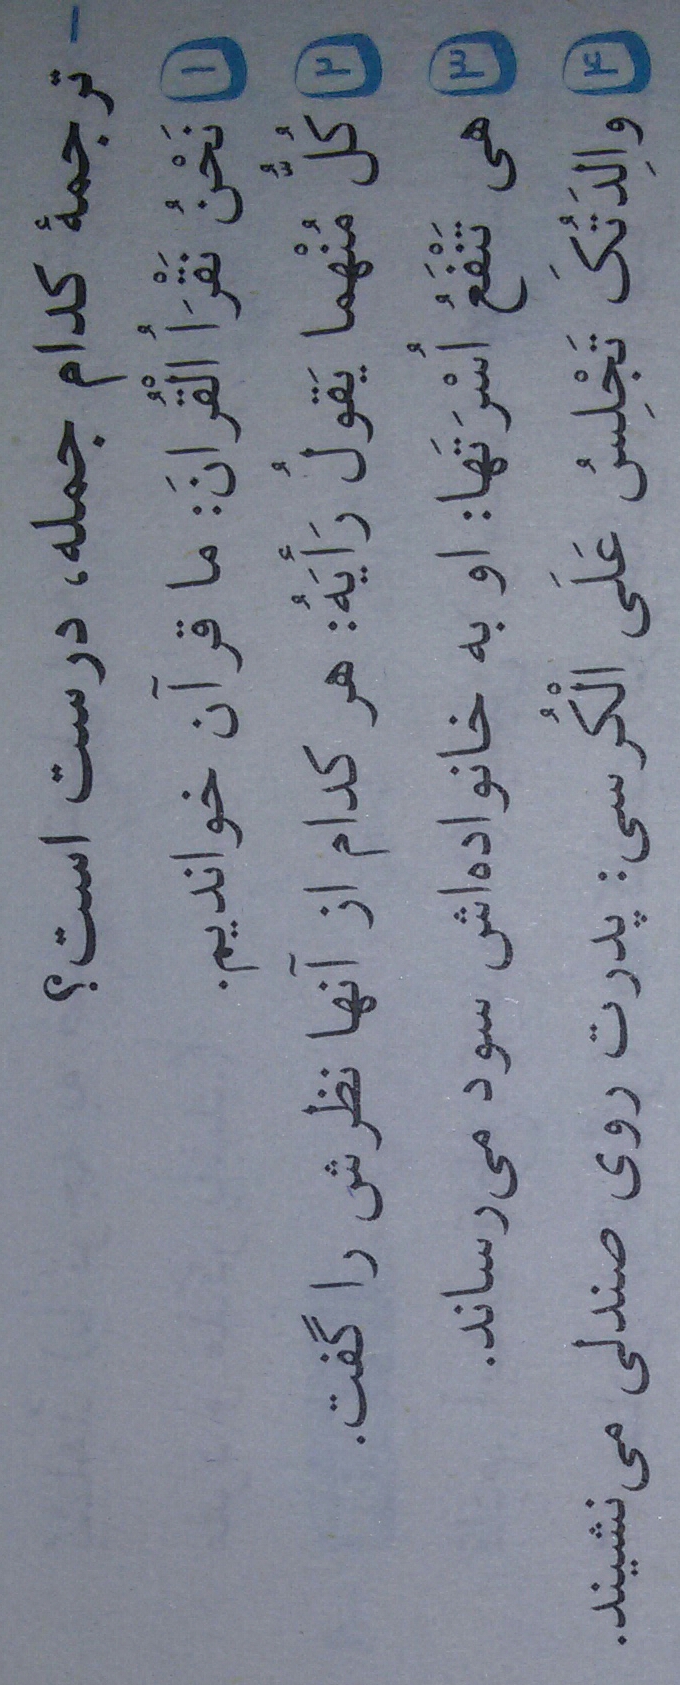 - ترجمهٔ کدام جمله، درست است؟
۱ نَحْنُ نَقْرَاُ الْقُرانَ: ما قرآن خواندیم.
۲ کُلُّ مُنْهما یَقولُ رَأیَهُ: هر کدام از آنها نظرش را گفت.
۳ هی تَنْفَعُ اُسْرَتَها: او به خانواده‌اش سود می‌رساند.
۴ والِدَتُکَ تَجْلِسُ عَلَی الْکُرسی: پدرت روی صندلی می‌نشیند.